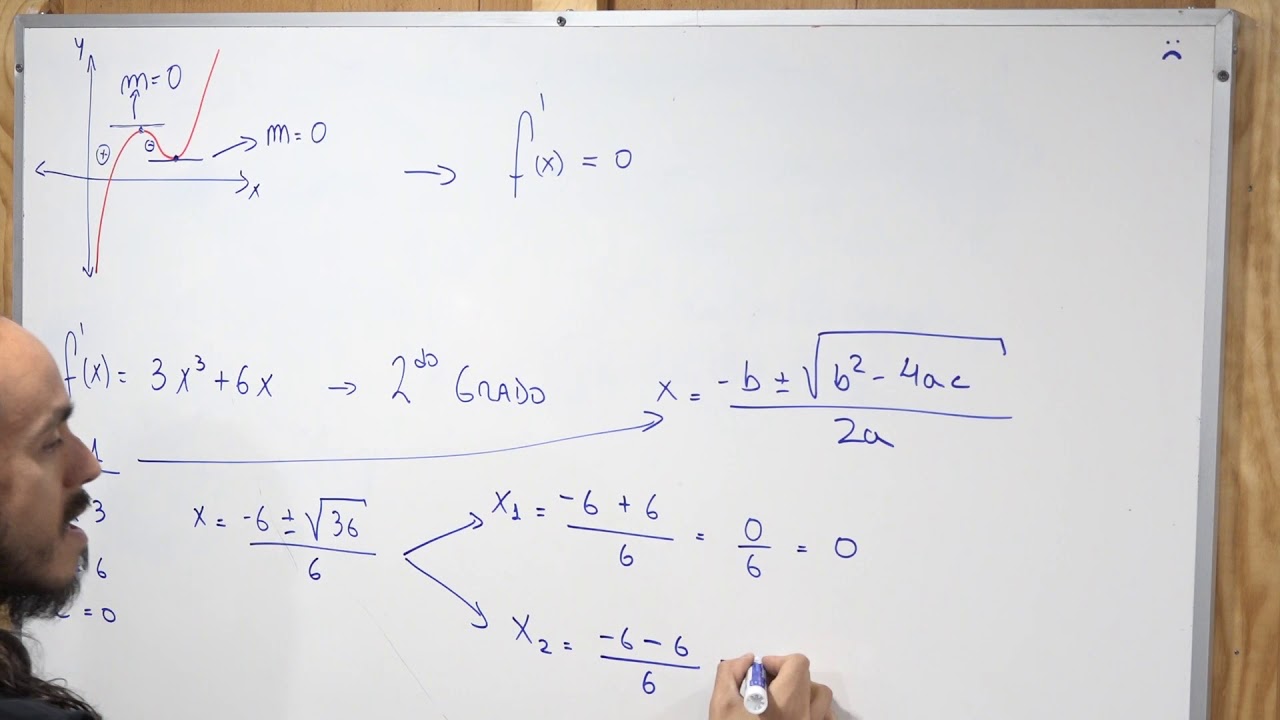 y
m=0
⊕ ⊖
m=0
x
→ f'(x) = 0
f'(x) = 3x³+6x → 2do GRADO
x = (-b ± √(b² - 4ac)) / 2a
1
3
6
= 0
x = (-6 ± √36) / 6
x₁ = (-6 + 6) / 6 = 0/6 = 0
x₂ = (-6 - 6) / 6